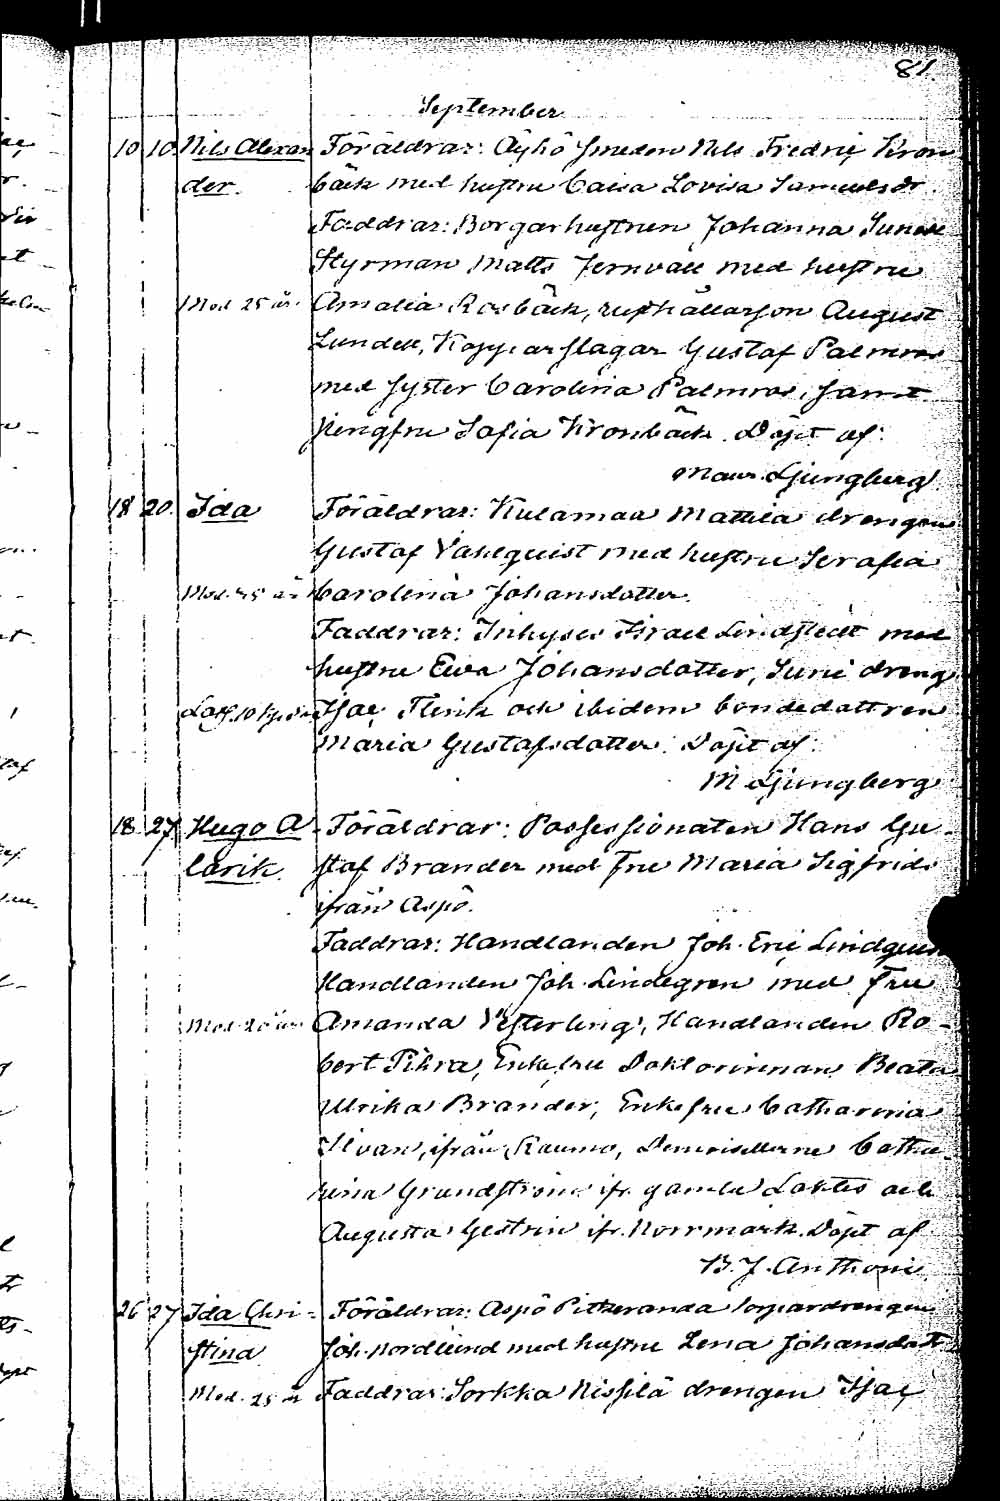 81.
September
10 10. Nils Alexan Föräldrar: Äyhö smeden Nils Fredric Kron
der. bäck med hustru Caisa Lovisa Samuelsdr.
Faddrar: Borgarhustrun Johanna
Styrman Matts Jernvall med hustru
Mod. 25 år. Amalia Rosbäck, August
Lundell, Kopparslagar Gustaf Palmros
med syster Carolina Palmros, samt
Jungfru Sofia Kronbäck. Döpt af:
Maur. Ljungberg
18 20. Ida Föräldrar: Kulamaa Mattila drengen
Gustaf Vahlquist med hustru Serafia
Mod. år Carolina Johansdotter.
Faddrar: Inhyses Israel Lindstedt med
hustru Ewa Johansdotter, Suni dreng
Isac Flink och ibidem bondedottren
Maria Gustafsdotter. Döpt af:
M. Ljungberg
18. 27. Hugo A- Föräldrar: Possessionaten Hans Gu-
larik. staf Brander med Fru Maria Sigfrids
ifrån Aspö.
Faddrar: Handlanden Joh. Eric
Handlanden Joh. Lindegren med Fru
Mod. år Amanda Vesterling, Handlanden Ro-
bert Enkefru Doktorinnan Beata
Ulrika Brander, Enkefru Catharina
ifrån Raumo, Demoisellerne Catha-
rina Grundström ifr. gamla och
Augusta Gestrin ifr. Norrmark. Döpt af
B. J. Anthoni.
26 27 Ida Chri- Föräldrar: Aspö Pitkeranda torpardrengen
stina Joh. Nordlund med hustru Lena Johansdott
Mod. 25 år Faddrar: Sorkka Nissilä drengen Isac